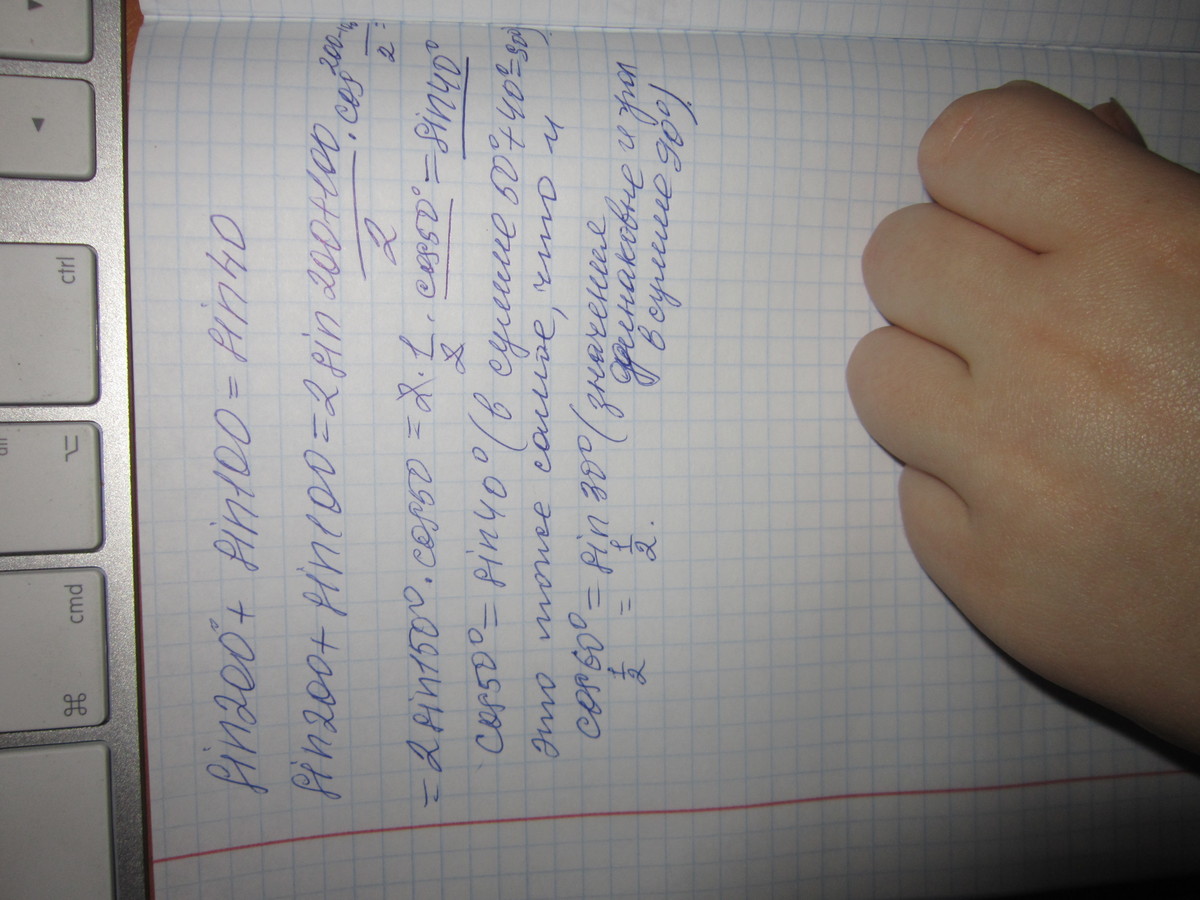 ⌘ cmd
alt
⌥
ctrl
◄
▼
sin200°+ sin100 = sin40
sin200+ sin100 = 2 sin (200+100)/2 · cos (200-100)/2 =
= 2 sin150° · cos50 = 2 · 1/2 · cos50° = sin40°
cos50° = sin40° (в сумме 50°+40°=90°)
это тоже самое, что и
cos60° = sin30° (значения
1/2 = 1/2. одинаковые и угол
в сумме 90°).